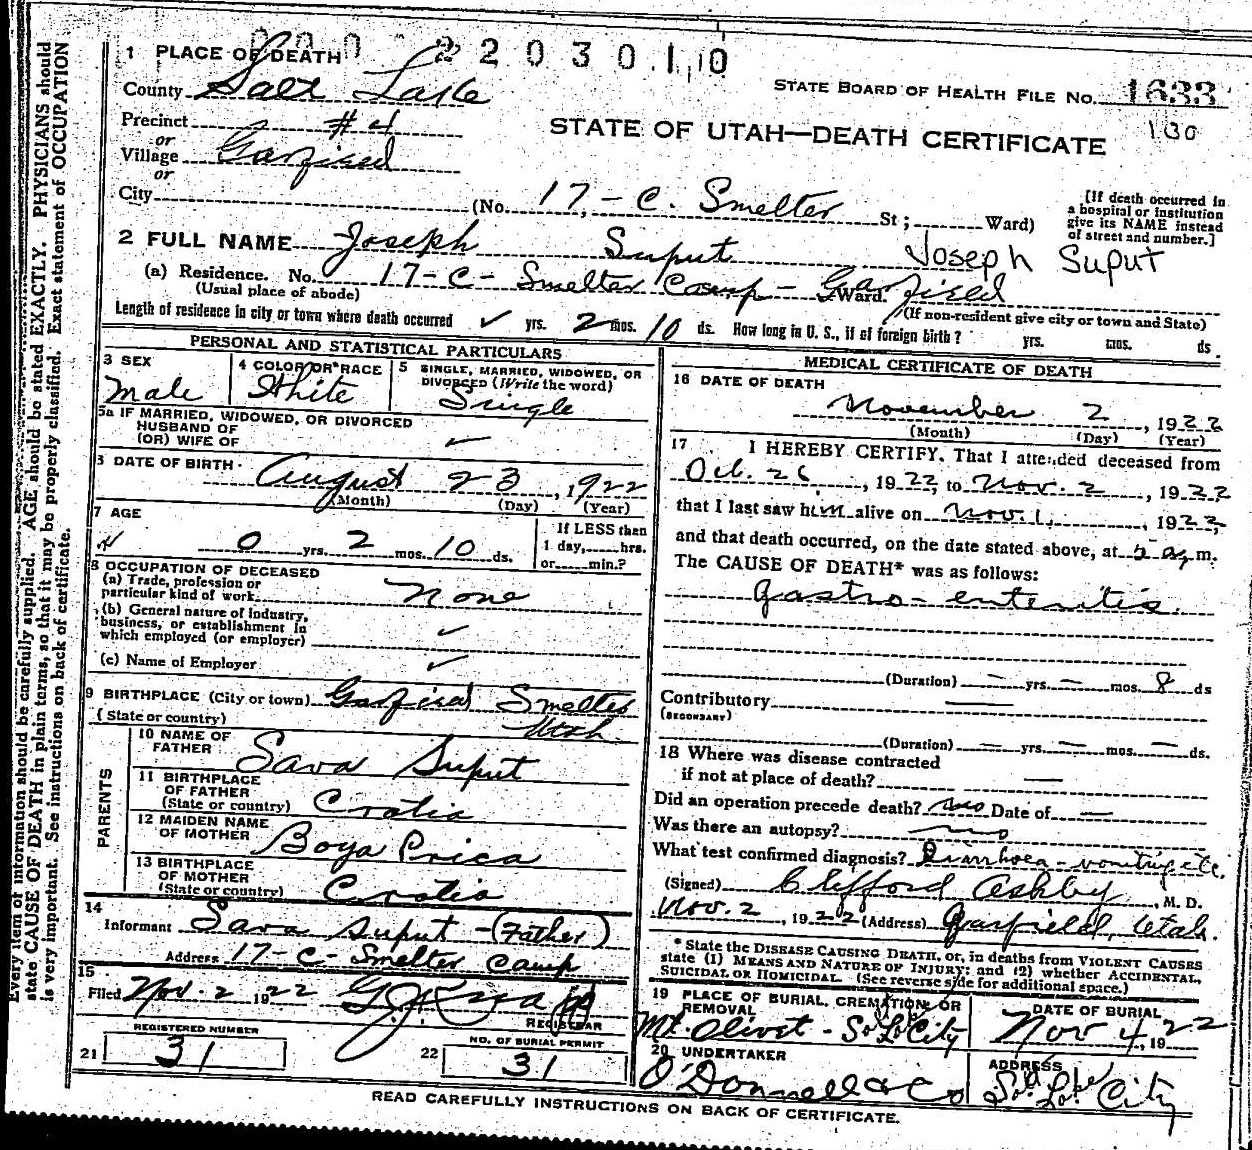 2203010
1 PLACE OF DEATH
STATE BOARD OF HEALTH FILE NO. 1633
County Salt Lake
130
Precinct #4
STATE OF UTAH—DEATH CERTIFICATE
or
Village Garfield
or
City (No. 17 - C. Smelter St; Ward)
[If death occurred in
a hospital or institution
give its NAME instead
of street and number.]
2 FULL NAME Joseph Suput Joseph Suput
(a) Residence. No. 17-C- Smelter Camp - Garfield Ward.
(Usual place of abode) (If non-resident give city or town and State)
Length of residence in city or town where death occurred ✓ yrs. 2 mos. 10 ds. How long in U. S., if of foreign birth? yrs. mos. ds.
PERSONAL AND STATISTICAL PARTICULARS
3 SEX
Male
4 COLOR OR RACE
White
5 SINGLE, MARRIED, WIDOWED, OR
DIVORCED (Write the word)
Single
5a IF MARRIED, WIDOWED, OR DIVORCED
HUSBAND OF
(OR) WIFE OF ✓
DATE OF BIRTH
August 23, 1922
(Month) (Day) (Year)
7 AGE
0 yrs. 2 mos. 10 ds.
If LESS then
1 day, hrs.
or min.?
8 OCCUPATION OF DECEASED
(a) Trade, profession or
particular kind of work None
(b) General nature of Industry,
business, or establishment in
which employed (or employer) ✓
(c) Name of Employer ✓
9 BIRTHPLACE (City or town) Garfield Smelter
(State or country) Utah
PARENTS
10 NAME OF
FATHER Sava Suput
11 BIRTHPLACE
OF FATHER
(State or country) Croatia
12 MAIDEN NAME
OF MOTHER Boya Prica
13 BIRTHPLACE
OF MOTHER
(State or country) Croatia
14
Informant Sava Suput - (Father)
Address 17-C- Smelter Camp
15
Filed Nov. 2 1922
REGISTRAR
REGISTERED NUMBER
21 31
NO. OF BURIAL PERMIT
22 31
MEDICAL CERTIFICATE OF DEATH
16 DATE OF DEATH
November 2, 1922
(Month) (Day) (Year)
17 I HEREBY CERTIFY, That I attended deceased from
Oct. 26, 1922, to Nov. 2, 1922
that I last saw him alive on Nov. 1, 1922,
and that death occurred, on the date stated above, at 5 a.m.
The CAUSE OF DEATH* was as follows:
Gastro-enteritis.
(Duration) — yrs. — mos. 8 ds
Contributory —
(SECONDARY)
(Duration) — yrs. — mos. — ds.
18 Where was disease contracted
if not at place of death? —
Did an operation precede death? no Date of —
Was there an autopsy? no
What test confirmed diagnosis? Diarrhoea - vomiting etc.
(Signed) Clifford Ashby, M. D.
Nov. 2, 1922 (Address) Garfield, Utah.
* State the DISEASE CAUSING DEATH, or, in deaths from VIOLENT CAUSES
state (1) MEANS AND NATURE OF INJURY; and (2) whether ACCIDENTAL,
SUICIDAL OR HOMICIDAL. (See reverse side for additional space.)
19 PLACE OF BURIAL, CREMATION, OR
REMOVAL
Mt. Olivet - City
DATE OF BURIAL
Nov 4, 1922
20 UNDERTAKER
O'Donnell & Co
ADDRESS
City
READ CAREFULLY INSTRUCTIONS ON BACK OF CERTIFICATE.
Every item of information should be carefully supplied. AGE should be stated EXACTLY. PHYSICIANS should
state CAUSE OF DEATH in plain terms, so that it may be properly classified. Exact statement of OCCUPATION
is very important. See instructions on back of certificate.